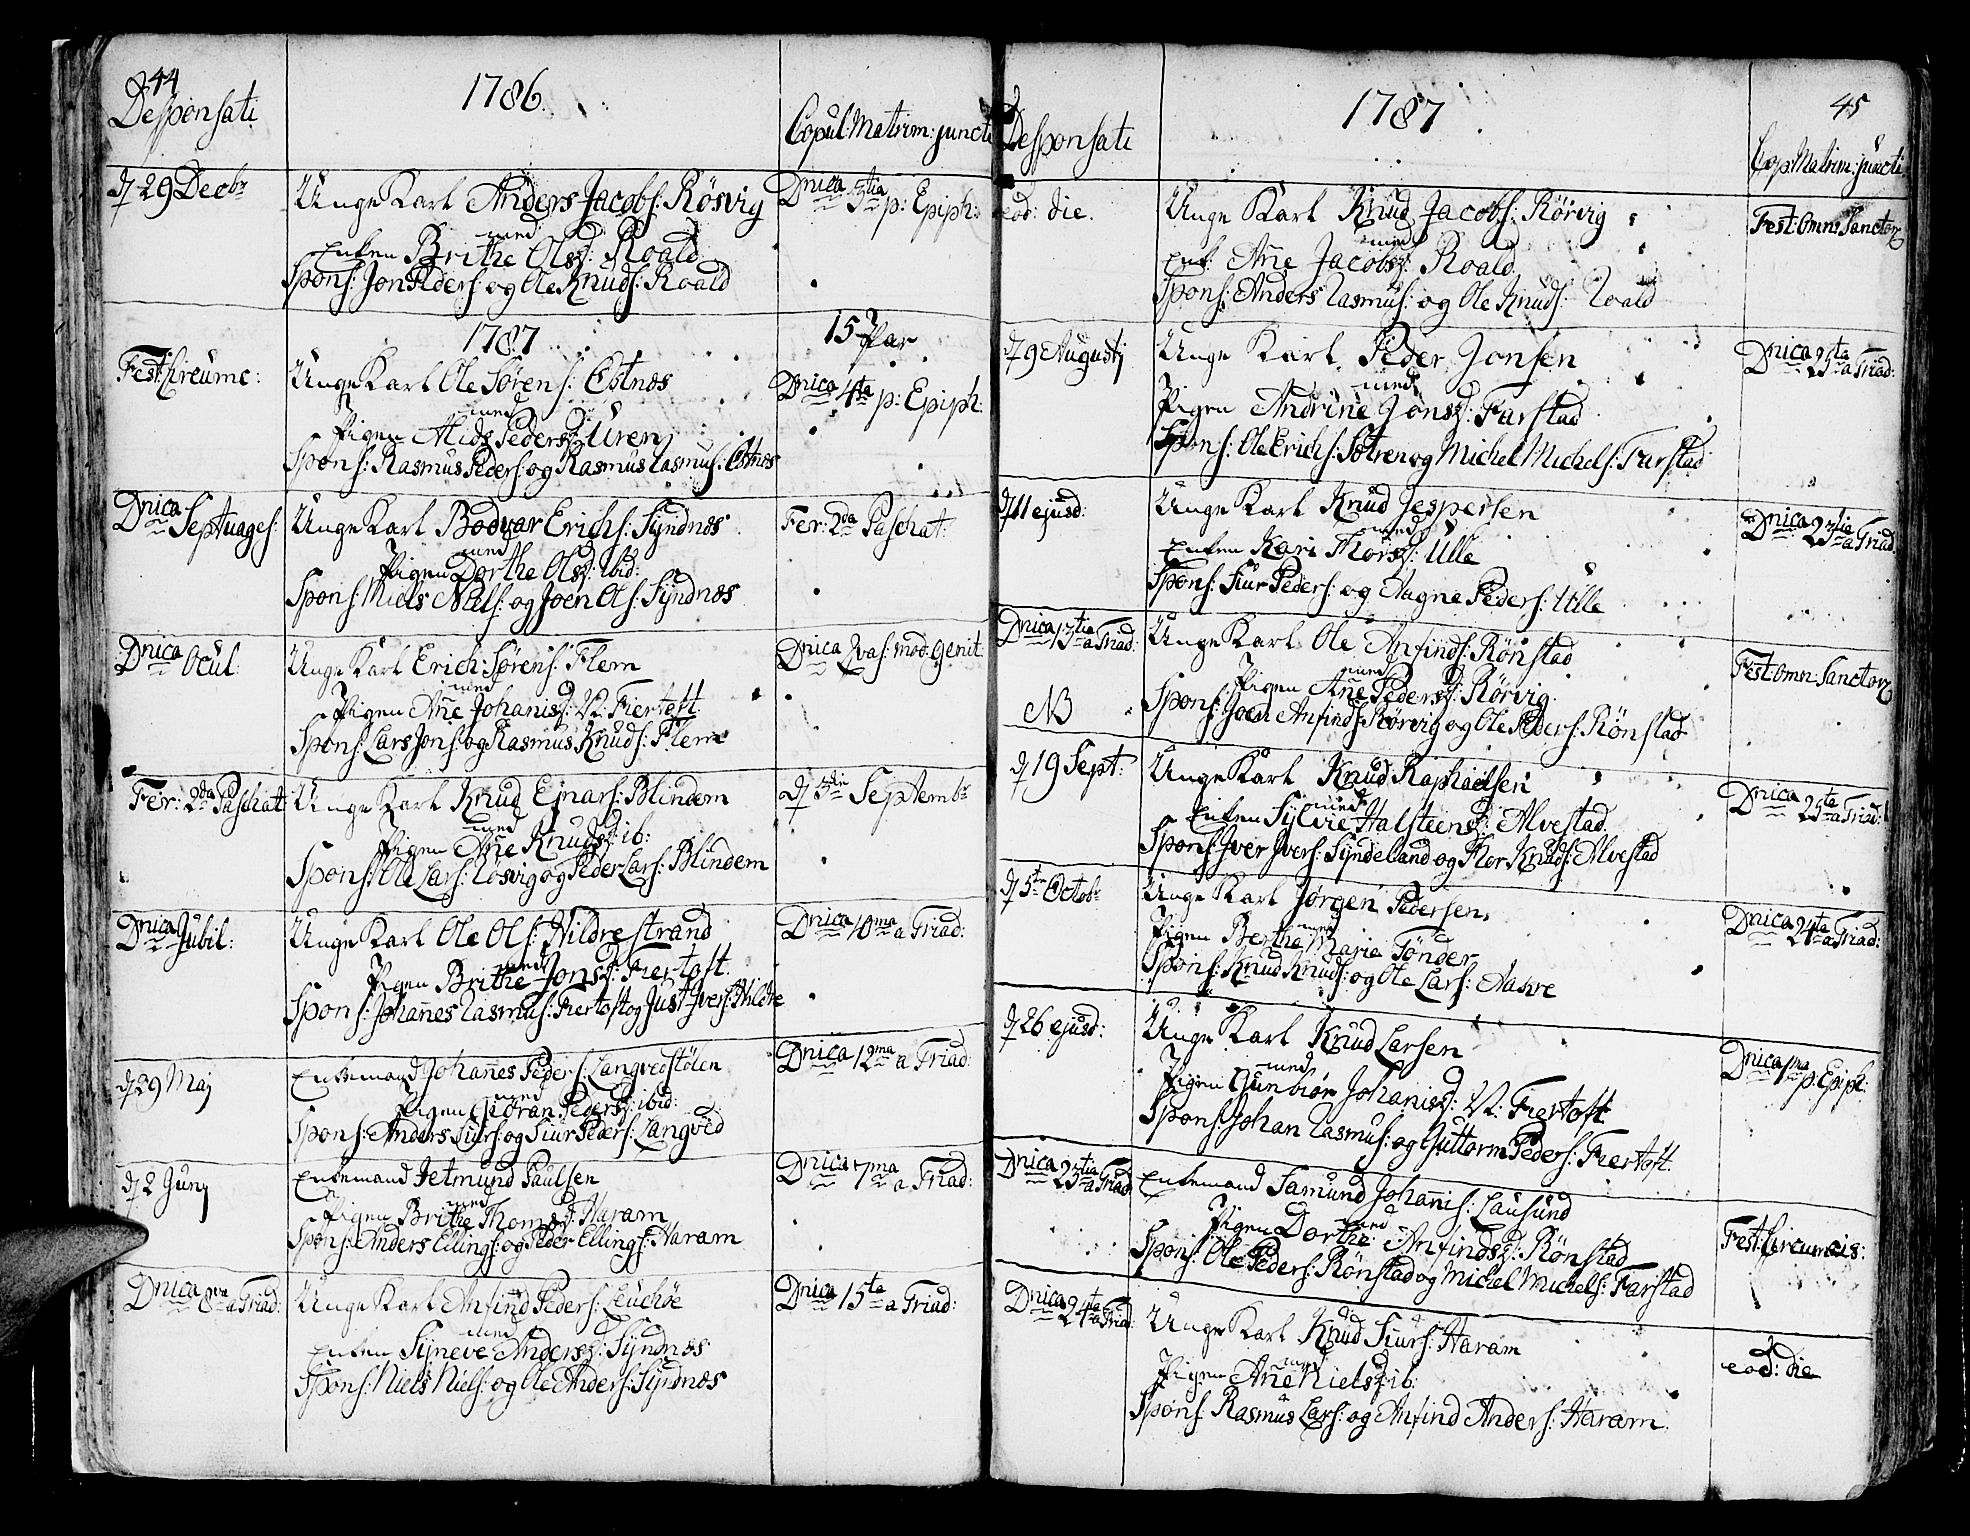 44
Desponsati
1786.
Copul: Matrim: juncti
d 29 Decbr
Unge Karl Anders Jacobs: Rösvig
med
Enken Brithe Olsd: Roald
Spons: Jon Peders: og Ole Knuds: Roald
Dnica 3tia p: Epiph:
1787
15 Par
Fest: Circumc:
Unge Karl Ole Sørens: Estnæs
med
Pigen Mids Pedersd: Uren
Spons: Rasmus Peders: og Rasmus Rasmus: Estnæs
Dnica 4ta p: Epiph:
Dnica Septuages:
Unge Karl Bodvar Erichs: Syndnæs
med
Pigen Dorthe Olsd: ibid:
Spons: Niels Niels: og Joen Ols: Syndnæs
Fer: 2da Paschat:
Dnica Ocul:
Unge Karl Erich Sørens: Flem
med
Pigen Ane Johanisd: V: Fiertoft
Spons: Lars Jons: og Rasmus Knuds: Flem
Dnica Qvas: mod: Genit:
Fer: 2da Paschat:
Unge Karl Knud Ejnars: Blindem
med
Pigen Ane Knudsd: ib:
Spons: Ole Lars: Rösvig og Peder Lars: Blindem
d 3die Septembr
Dnica Jubil:
Unge Karl Ole Ols: Hildrestrand
med
Pigen Brithe Jonsd: Fiertoft.
Spons: Johanes Rasmus: Fiertoft og Just Ivers: Hildre
Dnica 10ma a Triad:
d 29 Maj
Enkemand Johanes Peders: Langvedstölen
med
Pigen Gioran Pedersd: ibid:
Spons: Anders Siurs: og Siur Peders: Langved
Dnica 12ma a Triad:
d 2 Junj
Enkemand Jetmund Paulsen
med
Pigen Brithe Thomsd: Haram
Spons: Anders Ellings: og Peder Ellings: Haram
Dnica 7ma a Triad:
Dnica 8va a Triad:
Unge Karl Anfind Peders: Leuchöe
med
Enken Synneve Andersd: Syndnæs
Spons: Niels Niels: og Ole Anders: Syndnæs
Dnica 15ta a Triad:
Desponsati
1787
45
Cop: Matrim: juncti
eod: die.
Unge Karl Knud Jacobs: Rörvig
med
Enk: Ane Jacobsd: Roald
Spons: Anders Rasmus: og Ole Knuds: Roald
Fest: Omn: Sanctor
d 9 Augustj
Unge Karl Peder Jonsen
med
Pigen Andrine Jonsd: Farstad
Spons: Ole Erichs: Sætren og Michel Michels: Farstad
Dnica 25ta a Triad:
d 11 ejusd:
Unge Karl Knud Jespersen
med
Enken Kari Thorsd: Ulle
Spons: Siur Peders: og Aagne Peders: Ulle
Dnica 23tia a Triad:
Dnica 13tia a Triad:
Unge Karl Ole Anfinds: Rönstad
med
Pigen Ane Pedersd: Rörvig
NB
Spons: Joen Anfinds: Rörvig og Ole Peders: Rönstad
Fest: Omn: Sanctor
d 19 Sept:
Unge Karl Knud Raphaelsen
med
Enken Sylvie Halsteensd: Alvestad
Spons: Iver Ivers: Syndeland og Flor Knuds: Alvestad
Dnica 25ta a Triad:
d 5te Octobr
Unge Karl Jørgen Pedersen
med
Pigen Berthe Marie Tönder
Spons: Knud Knuds: og Ole Lars: Aahre
Dnica 24ta a Triad:
d 26 ejusd:
Unge Karl Knud Larsen
med
Pigen Gunbiör Johanisd: V: Fiertoft
Spons: Johan Rasmus: og Guttorm Peders: Fiertoft.
Dnica 1ma p: Epiph:
Dnica 23tia a Triad
Enkemand Samund Johanis: Lausund
med
Pigen Dorthe Anfindsd: Rönstad
Spons: Ole Peders: Rönstad og Michel Michels: Farstad
Fest: Circumcis:
Dnica 24ta a Triad:
Unge Karl Knud Siurs: Haram
med
Pigen Ane Nielsd: ib:
Spons: Rasmus Lars: og Anfind Anders: Haram
eod: die